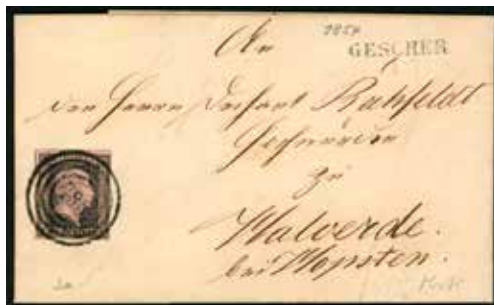 1854
GESCHER
An
den Herrn Dechant
Hochwürden
zu
Halverde.
bei Hopsten.